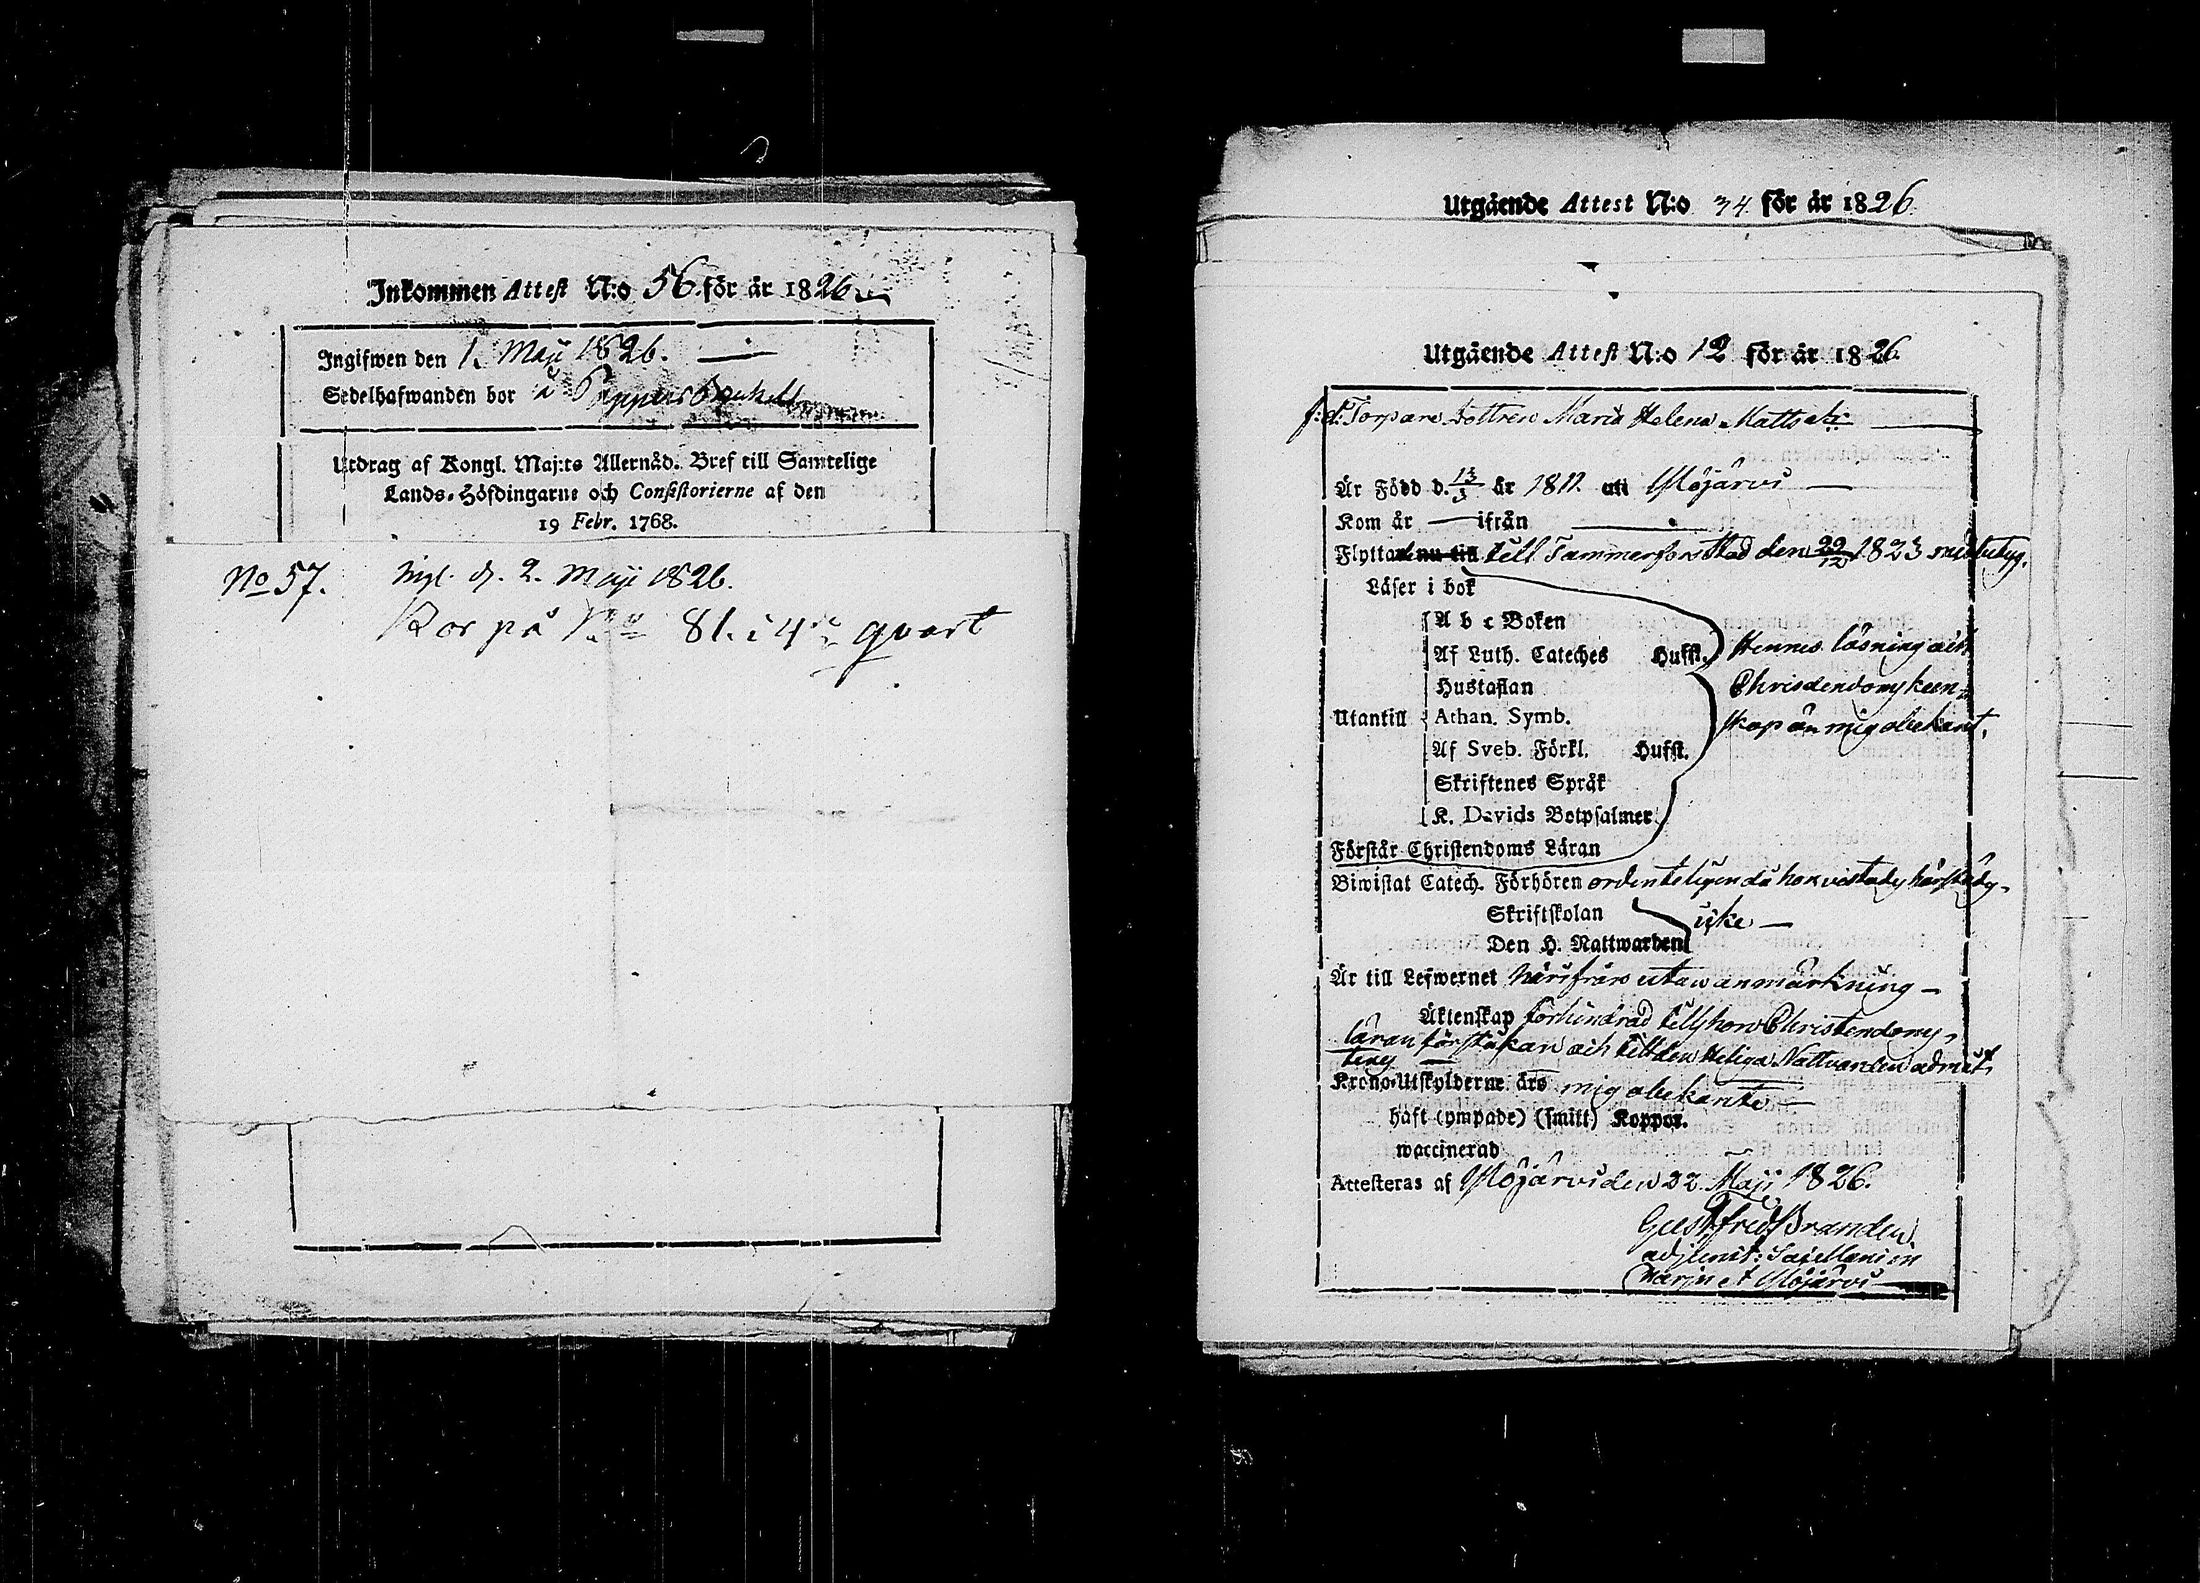 Inkommen Attest N:o 56 för år 1826
Ingifwen den 1. Maji 1826.
Sedelhafwanden bor
Utdrag af Kongl. Maj:ts Allernåd. Bref till Samtelige
Lands-Höfdingarne och Consistorierne af den
19 Febr. 1768.
No 57. Ingl. d. 2. Maji 1826.
Bor på No 81. i 4de qvart
Utgående Attest N:o 34 för år 1826.
Utgående Attest N:o 12 för år 1826.
f:d: Torpare dottren Maria Helena Mattsdr:
Är Född d. 13/3 år 1811. uti Mojärvi
Kom år — ifrån —
Flyttad nu till till Tammerfors Stad den 22/12 1823
Läser i bok
A b c Boken
Af Luth. Cateches Hufst. Hennes läsning och
Hustaflan Christendoms keen-
Utantill Athan. Symb. skap än mig obekant.
Af Sveb. Förkl. Hufst.
Skriftenes Språk
K. Davids Botpsalmer
Förstår Christendoms Läran
Biwistat Catech. Förhören ordenteligen då hon vistads härstädes
Skriftskolan icke —
Den H. Nattwarden
Är till Lefwernet härifrån utan anmärkning —
Äktenskap förhindrad tills hon Christendoms
läran förstå kan och till den Heliga Nattvarden admit-
teras
Krono-Utskylderne äro mig obekante —
haft (ympade) (smitt) Koppor.
waccinerad
Attesteras af Mojärvi den 22 Maji 1826.
Gust. Fred. Brander
adjunct: Sacellani in
et Mojärvi